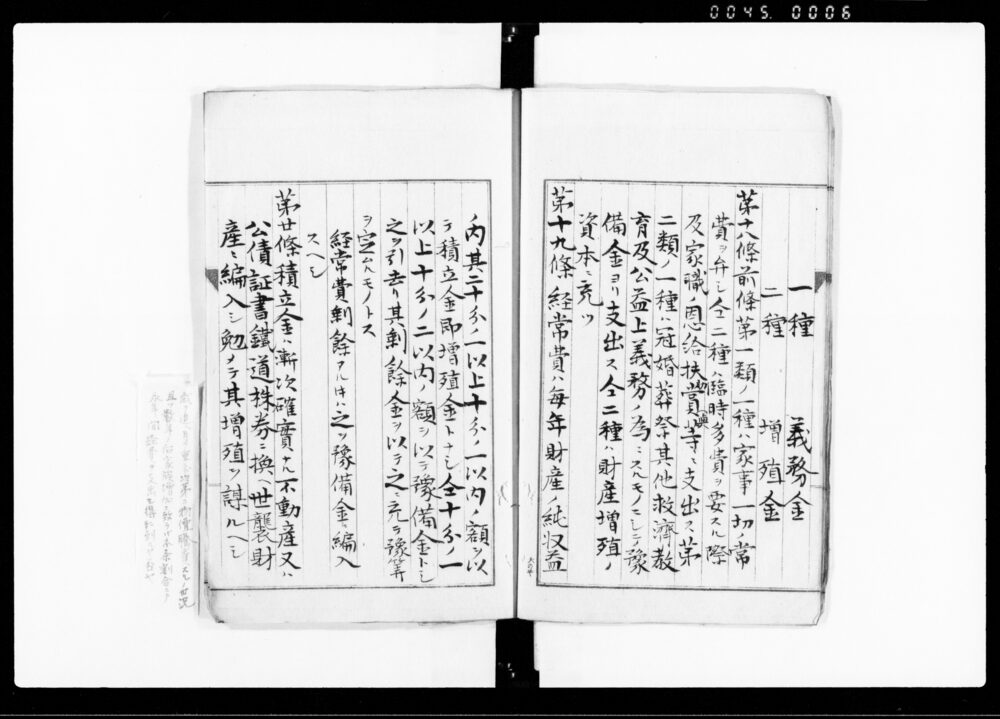 0045. 0006
一種　義務金
二種　増殖金
第十八條前條第一類ノ一種ハ家事一切ノ常
費ヲ弁シ仝二種ハ臨時多費ヲ要スル際
及家職ノ恩給扶助賞與等ニ支出ス第
二類ノ一種ハ冠婚葬祭其他救濟教
育及公益上義務ノ為ニスルモノニシテ豫
備金ヨリ支出ス仝二種ハ財産増殖ノ
資本ニ充ツ
第十九條経常費ハ毎年財産ノ純収益
ノ内其二十分ノ一以上十分ノ一以内ノ額ヲ以
テ積立金即増殖金トナシ仝十分ノ一
以上十分ノ二以内ノ額ヲ以テ豫備金トシ
之ヲ引去リ其剰餘金ヲ以テ之ニ充ツ豫筭
ヲ定ムルモノトス
経常費剰餘アル片ハ之ヲ豫備金ニ編入
スヘシ
第廿條積立金ハ漸次確實ナル不動産又ハ
公債証書鐵道株券ニ換ヘ世襲財
産ニ編入シ勉メテ其増殖ヲ謀ルヘシ